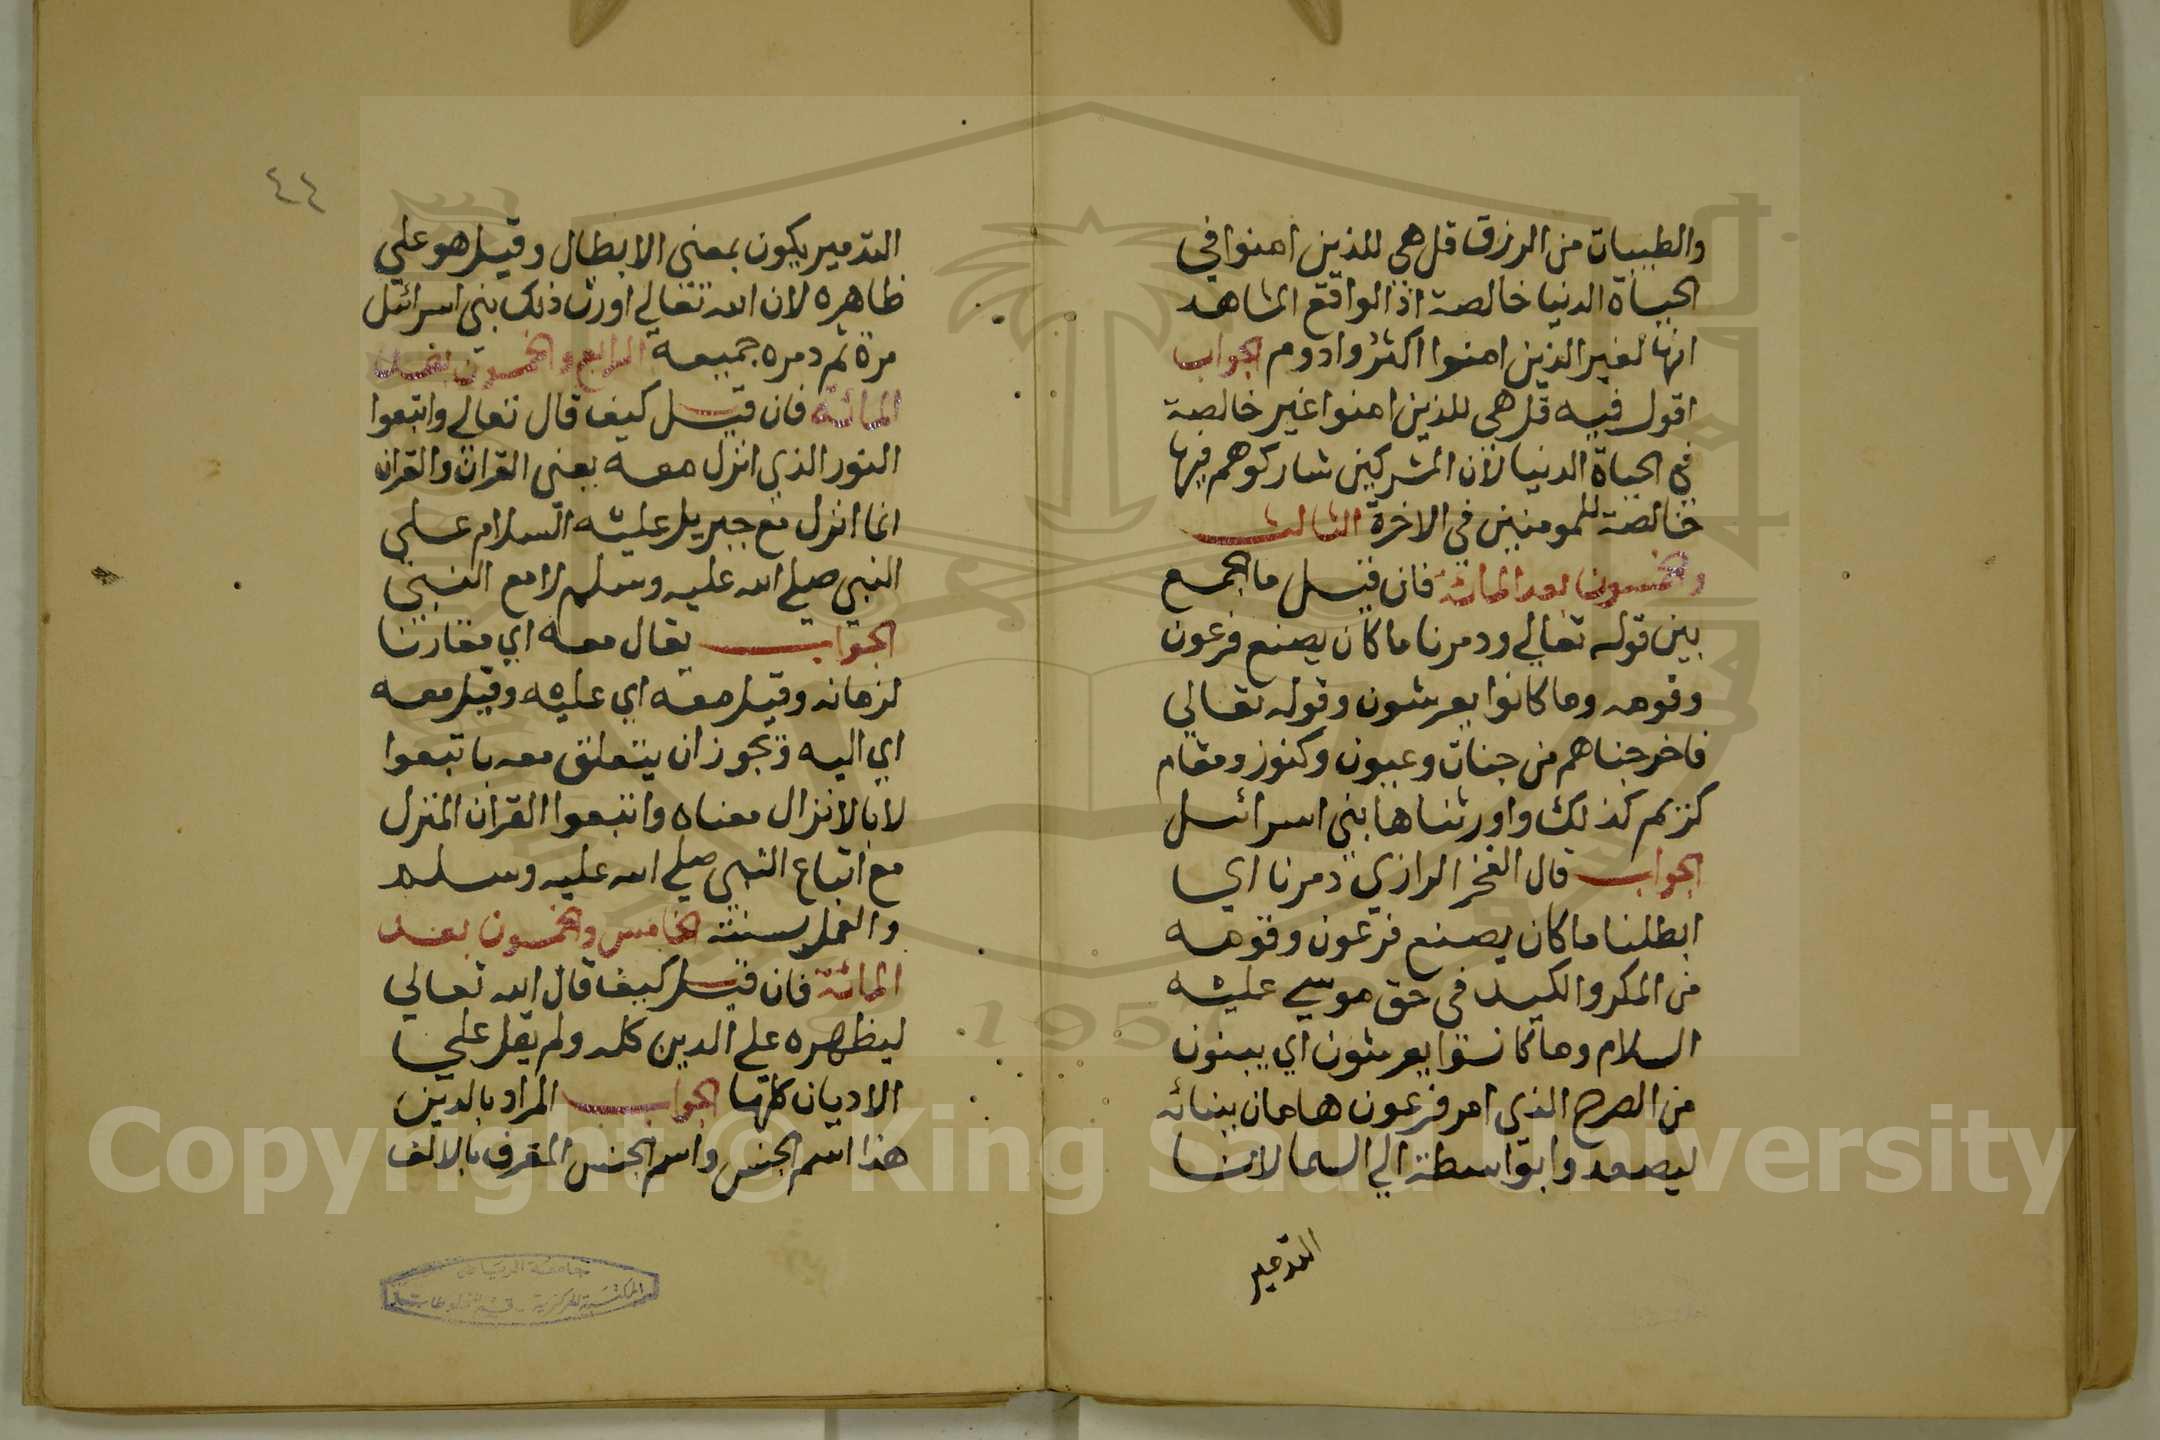 والطيبات من الرزق قل هي للذين امنوا في
الحياة الدنيا خالصة اذ الواقع المشاهد
انها لغير الذين امنوا اكثر وادوم الجواب
اقول فيه قل هي للذين امنوا غير خالصة
في الحياة الدنيا لان المشركين شاركوهم فيها
خالصة للمومنين في الاخرة الثالث
والخمسون بعد المائة فان قيل ما الجمع
بين قوله تعالي ودمرنا ما كان يصنع فرعون
وقومه وما كانوا يعرشون وقوله تعالي
فاخرجناهم من جنات وعيون وكنوز ومقام
كريم كذلك واورثناها بني اسرائيل
الجواب قال الفخر الرازي دمرنا اي
ابطلنا ما كان يصنع فرعون وقومه
من المكر والكيد في حق موسي عليه
السلام وما كانوا يعرشون اي يبنون
من الصرح الذي امر فرعون هامان ببنائه
ليصعد وابواسطة الي السما لان
التدمير
٤٤
التدمير يكون بمعني الابطال وقيل هو علي
ظاهره لان الله تعالي اورث ذلك بني اسرائيل
مرة ثم دمره جميعه الرابع والخمسون بعد
المائة فان قيل كيف قال تعالي واتبعوا
النور الذي انزل معه يعني القران والقران
انما انزل مع جبريل عليه السلام علي
النبي صلي الله عليه وسلم لا مع النبي
الجواب يقال معه اي مقارنا
لزمانه وقيل معه اي عليه وقيل معه
اي اليه ويجوز ان يتعلق معه باتبعوا
لا بالانزال معناه واتبعوا القران المنزل
مع اتباع النبي صلي الله عليه وسلم
والعمل بسنته الخامس والخمسون بعد
المائة فان قيل كيف قال الله تعالي
ليظهره علي الدين كله ولم يقل علي
الاديان كلها الجواب المراد بالدين
هذا اسم الجنس واسم الجنس المعرف بالالف
جامعة الرياض
المكتبة المركزية - قسم المخطوطات
1957
Copyright © King Saud University